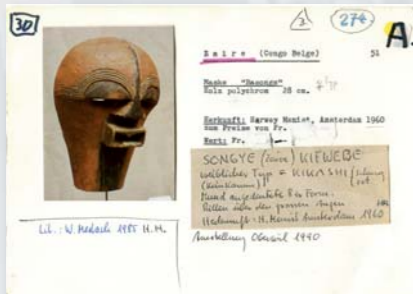 30
274
A
Zaire (Congo Belge) 51
Maske "Basonge"
Holz polychrom 28 cm.
Herkunft: Harway Amsterdam 1960
zum Preise von Fr.
Wert: Fr.
SONGYE (Zaire) KIFWEBE
weiblicher Typ = KIKASHI
(kein Kamm)
Mund angedeutete 8er Form.
Rillen über den grossen Augen
Herkunft: H. Amsterdam 1960
Lit.: W. 1985 H.M.
Ausstellung Oberwil 1990